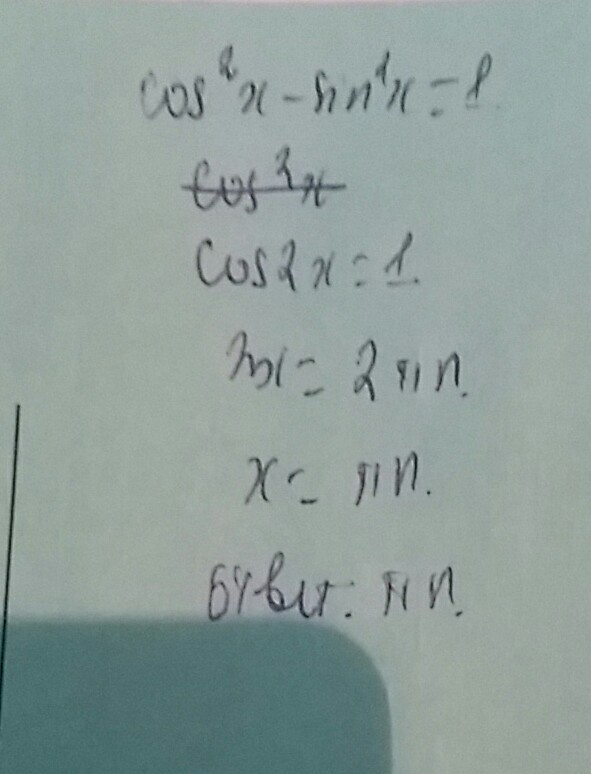 cos²x - sin²x = 1
cos²x
cos2x = 1
2x = 2πn.
x = πn.
Ответ: πn.